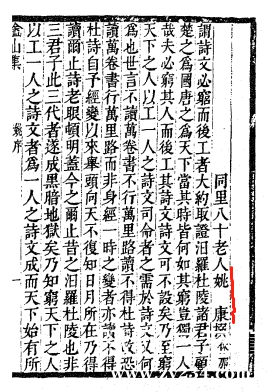 同里八十老人姚　康
謂詩文必窮而後工者大約取證汨羅杜陵諸君子顧
楚之爲國唐之爲天下當其時皆何如其窮豈獨一人
哉夫必窮其人而後工其詩文詩文可不設矣乃至窮
天下之人以工一人之詩文司命者之需於詩文又何
爲也世言不讀萬卷書不行萬里路讀不得杜詩文恐
讀萬卷書行萬里路而非身經一時之變者亦讀不得
杜詩自予經變以來舉頭向天不復知日月所在乃得
讀爾止詩老眼頓明蓋今之爾止昔之汨羅杜陵也非
三君子此三代者遂成黑暗地獄矣乃知窮天下之人
以工一人之詩文者爲一人之詩文成而天下始有所
嵞山集
序
一